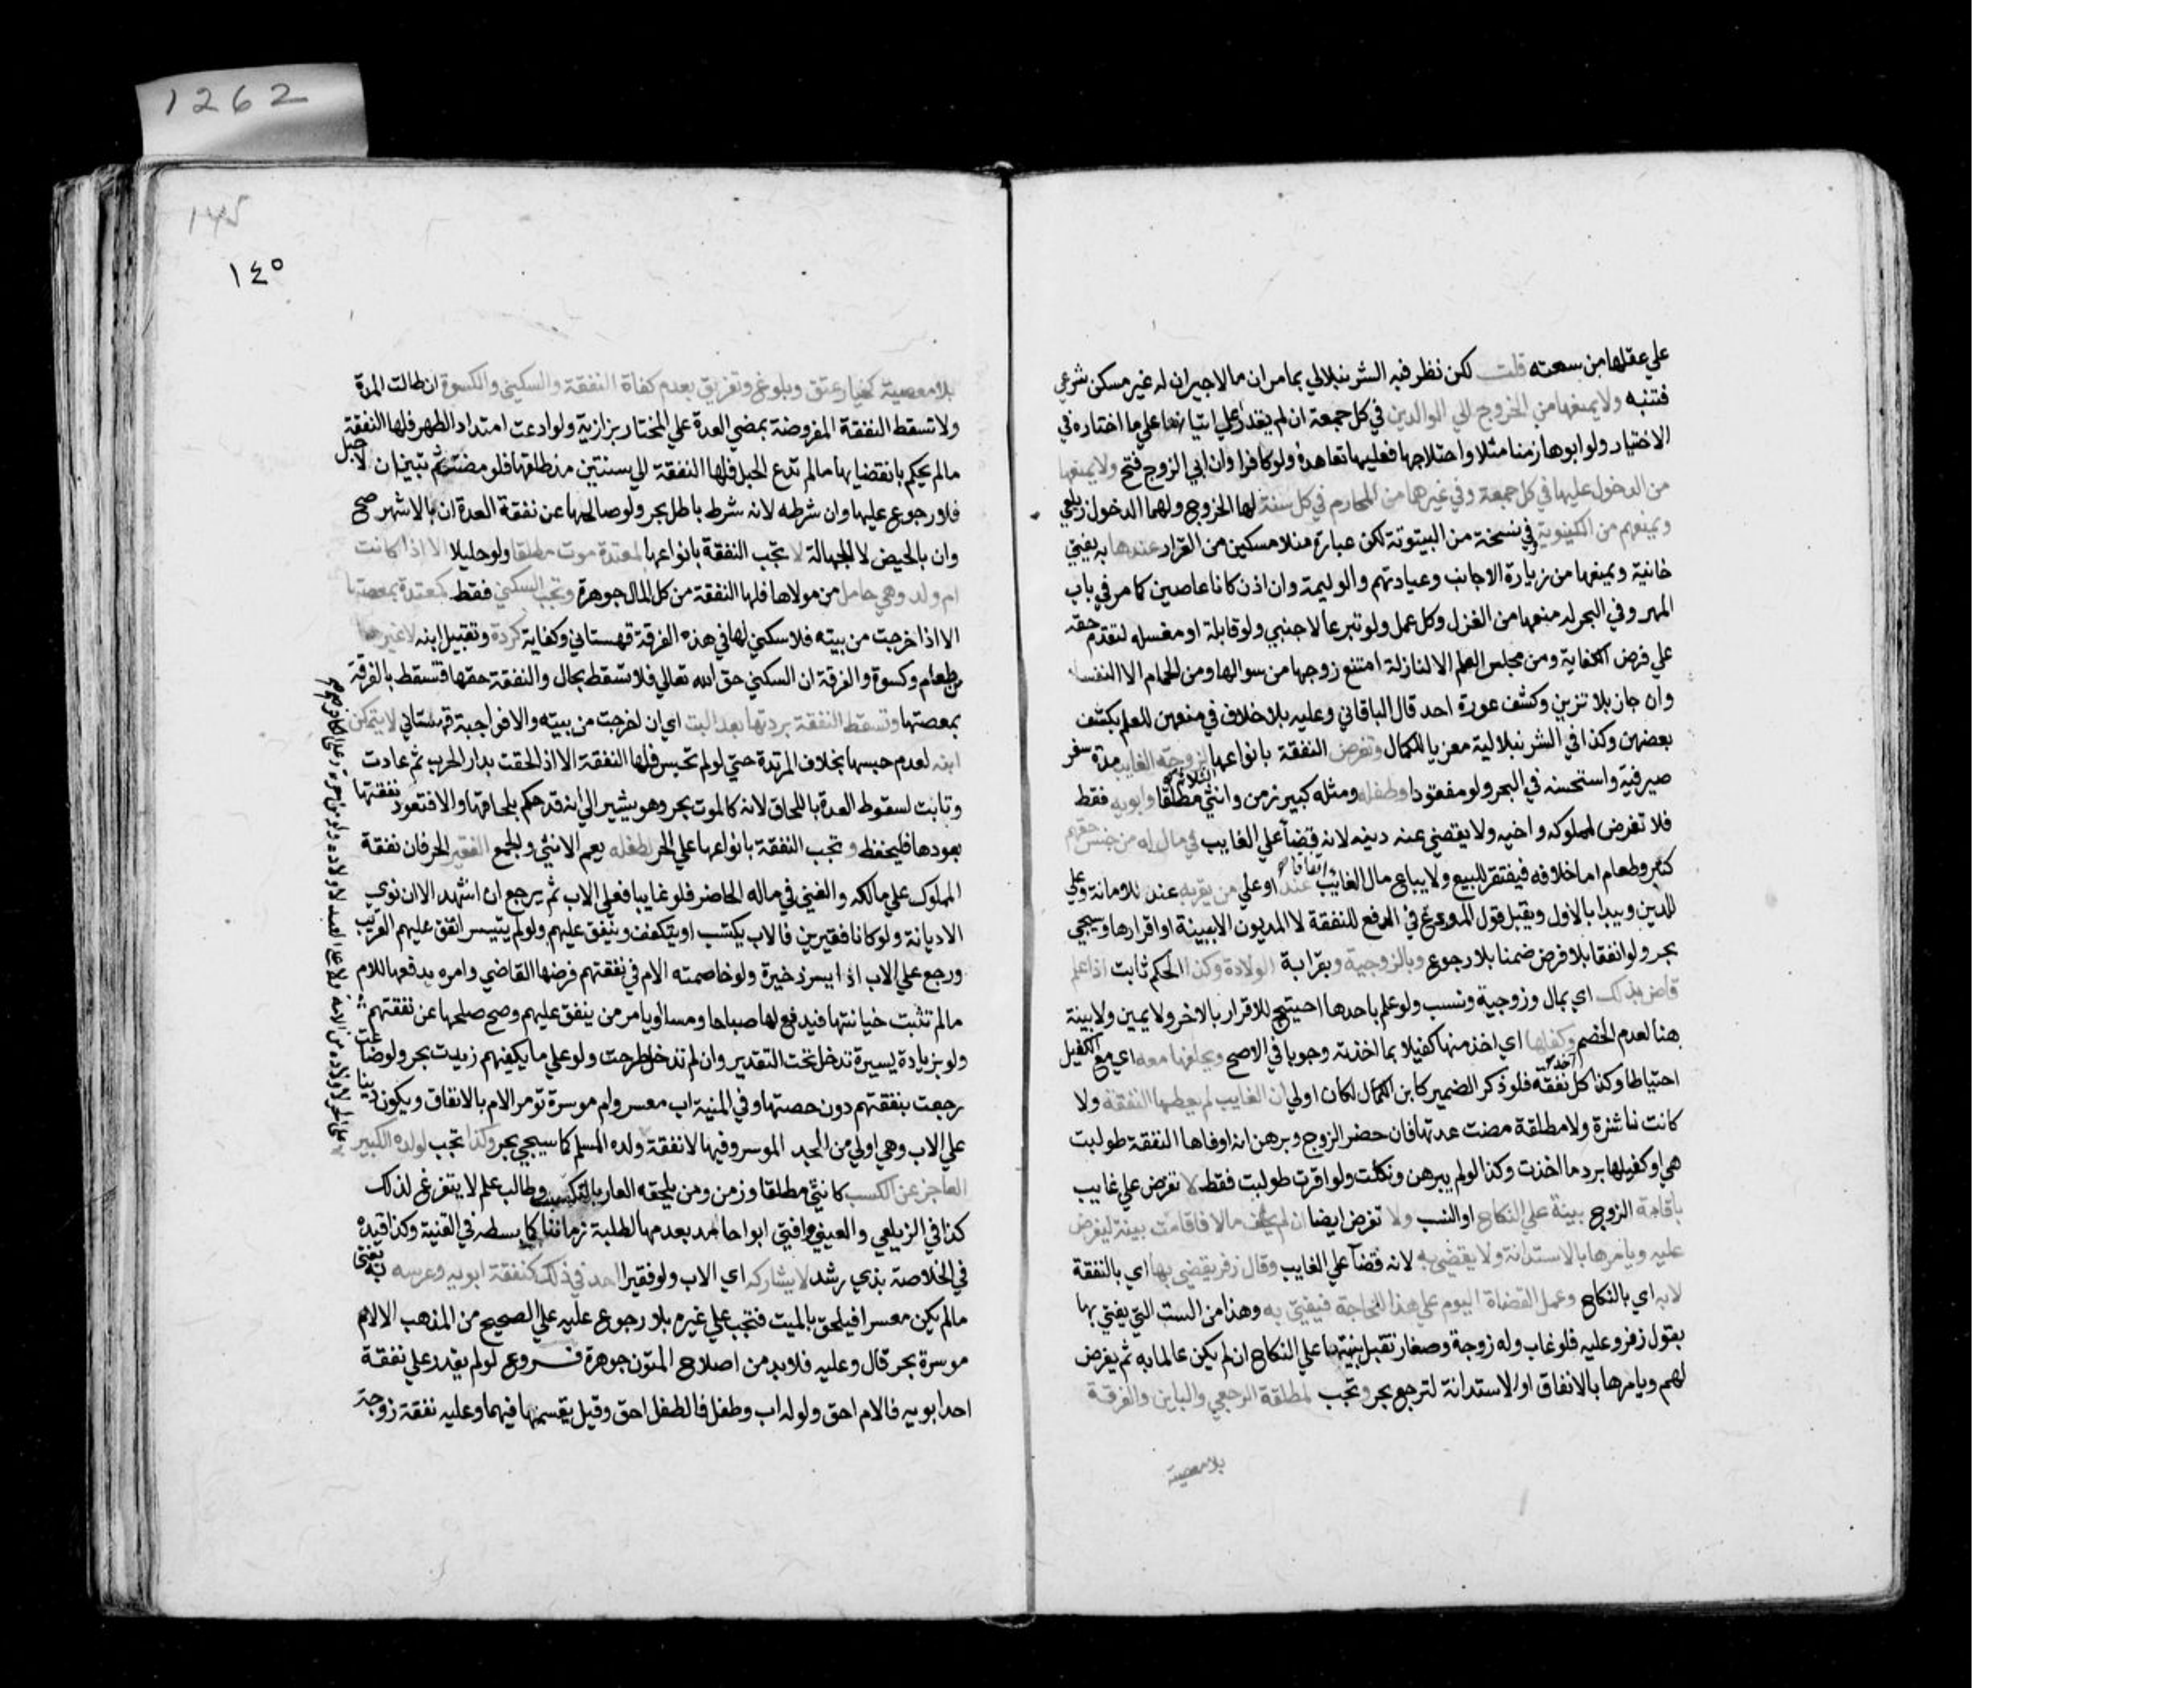 1262
١٤٥
علي عقلها من سعته قلت لكن نظر فيه الشرنبلالي بما مر ان ما لا جيران له غير مسكن شرعي
فتنبه ولا يمنعها من الخروج الي الوالدين في كل جمعة ان لم يقدرا علي اتيانها علي ما اختاره في
الاختيار ولو ابوها زمنا مثلا واحتلاجها فعليها تعاهده ولو كافرا وان ابي الزوج فتح ولا يمنعها
من الدخول عليها في كل جمعة وفي غيرها من المحارم في كل سنة لها الخروج ولهما الدخول زيلعي
ويمنعهم من الكينونة في نسخة من البيتوتة لكن عبارة منلا مسكين من القرار عندها به يفتي
خانية ويمنعها من زيارة الاجانب وعيادتهم والوليمة وان اذن كانا عاصين كما مر في باب
المهر وفي البحر له منعها من الغزل وكل عمل ولو تبرعا لاجنبي ولو قابلة او مغسله لتقدم حقه
علي فرض الكفاية ومن مجلس العلم الا لنازلة امتنع زوجها من سوالها ومن الحمام الا النفسا
وان جاز بلا تزين وكشف عورة احد قال الباقاني وعليه بلا خلاف في منعهن للعلم بكشف
بعضهن وكذا في الشرنبلالية معزيا للكمال وتفرض النفقة بانواعها الثلاثة لزوجة الغايب مدة سفر
صيرفية واستحسنه في البحر ولو مفقودا وطفله ومثله كبير زمن وانثي مطلقا وابويه فقط
فلا تفرض لمملوكه واخيه ولا يقضي عنه دينه لانه قضآ علي الغايب في مال له من جنس حقهم
كتبر وطعام اما خلافه فيفتقر للبيع ولا يباع مال الغايب اتفاقا عند او علي من يقر به عند للامانة وعلي
للدين ويبدا بالاول ويقبل قول المودع في الدفع للنفقة لا المديون الا ببينة او اقرارها وسيجي
بحر ولو انفقا بلا فرض ضمنا بلا رجوع وبالزوجية وبقرابة الولادة وكذا الحكم ثابت اذا علم
قاض بذلك اي بمال وزوجية ونسب ولو علم باحدها احتيج للاقرار بالاخر ولا يمين ولا بينة
هنا لعدم الخصم وكفلها اي اخذ منها كفيلا بما اخذته وجوبا في الاصح ويحلفها معه اي مع الكفيل
احتياطا وكذا كل اخذ نفقة فلو ذكر الضمير كابن الكمال لكان اولي ان الغايب لم يعطها النفقة ولا
كانت ناشزة ولا مطلقة مضت عدتها فان حضر الزوج وبرهن انه اوفاها النفقة طولبت
هي او كفيلها برد ما اخذت وكذا لو لم يبرهن ونكلت ولو اقرت طولبت فقط لا تفرض علي غايب
باقامة الزوج بينة علي النكاح او النسب ولا تفرض ايضا ان لم يخلف مالا فاقامت بينة ليفرض
عليه ويامرها بالاستدانة ولا يقضي به لانه قضآ علي الغايب وقال زفر يقضي بها اي بالنفقة
لا به اي بالنكاح وعمل القضاة اليوم علي هذا للحاجة فيفتي به وهذا من الست التي يفتي بها
بقول زفر وعليه فلو غاب وله زوجة وصغار تقبل بينتها علي النكاح ان لم يكن عالما به ثم يفرض
لهم ويامرها بالانفاق او الاستدانة لترجع بحر وتجب لمطلقة الرجعي والباين والفرقة
بلا معصية
بلا معصية كخيار عتق وبلوغ وتفريق بعدم كفاة النفقة والسكني والكسوة ان طالت المدة
ولا تسقط النفقة المفروضة بمضي العدة علي المختار بزازية ولو ادعت امتداد الطهر فلها النفقة
ما لم يحكم بانقضايها ما لم تدع الحبل فلها النفقة الي سنتين منذ طلقها فلو مضتا ثم تبين ان لا حبل
فلا رجوع عليها وان شرطه لانه شرط باطل بحر ولو صالحها عن نفقة العدة ان بالاشهر صح
وان بالحيض لا للجهالة لا تجب النفقة بانواعها لمعتدة موت مطلقا ولو حايلا الا اذا كانت
ام ولد وهي حامل من مولاها فلها النفقة من كل المال جوهرة وتجب السكني فقط لمعتدة بمعصيتها
الا اذا خرجت من بيته فلا سكني لها في هذه الفرقة قهستاني وكفاية كردة وتقبيل ابنه لا غيرها
من طعام وكسوة والفرقة ان السكني حق الله تعالي فلا تسقط بحال والنفقة حقها فتسقط بالفرقة
بمعصيتها وتسقط النفقة بردتها بعد البت اي ان خرجت من بيته والا فواجبة قهستاني لا بتمكين
ابنه لعدم حبسها بخلاف المرتدة حتي لو لم تحبس فلها النفقة الا اذا لحقت بدار الحرب ثم عادت
وتابت لسقوط العدة باللحاق لانه كالموت بحر وهو يشير الي انه قد حكم بلحاقها والا فتعود نفقتها
بعودها فليحفظ وتجب النفقة بانواعها علي الحر لطفله يعم الانثي والجمع الفقير الحر فان نفقة
المملوك علي مالكه والغني في ماله الحاضر فلو غايبا فعلي الاب ثم يرجع ان اشهد الا ان نوي
الا ديانة ولو كانا فقيرين فالاب يكتسب او يتكفف وينفق عليهم ولو لم يتيسر انفق عليهم القريب
ورجع علي الاب اذا ايسر ذخيرة ولو خاصمته الام في نفقتهم فرضها القاضي وامره بدفعها للام
ما لم تثبت خيانتها فيدفع لها صباحا ومسا او يامر من ينفق عليهم وصح صلحها عن نفقتهم
ولو بزيادة يسيرة تدخل تحت التقدير وان لم تدخل طرحت ولو علي ما يكفيهم زيدت بحر ولو ضاعت
رجعت بنفقتهم دون حصتها وفي المنية اب معسر وام موسرة تومر الام بالانفاق ويكون دينا
علي الاب وهي اولي من الجد الموسر وفيها لا نفقة ولده المسلم كما سيجي بحر وكذا تجب لولده الكبير
العاجز عن الكسب كانثي مطلقا وزمن ومن يلحقه العار بالتكسب وطالب علم لا يتفرغ لذلك
كذا في الزيلعي والعيني وافتي ابو احامد بعدمها لطلبة زماننا كما بسطه في القنية وكذا قيده
في الخلاصة بذي رشد لا يشاركه اي الاب ولو فقيرا احد في ذلك كنفقة ابويه وعرسه به يفتي
ما لم يكن معسرا فيلحق بالميت فتجب علي غيره بلا رجوع عليه علي الصحيح من المذهب الا لام
موسرة بحر قال وعليه فلا بد من اصلاح المتون جوهرة فروع لو لم يقدر علي نفقة
احد ابويه فالام احق ولو له اب وطفل فالطفل احق وقيل يقسمها فيهما وعليه نفقة زوجة